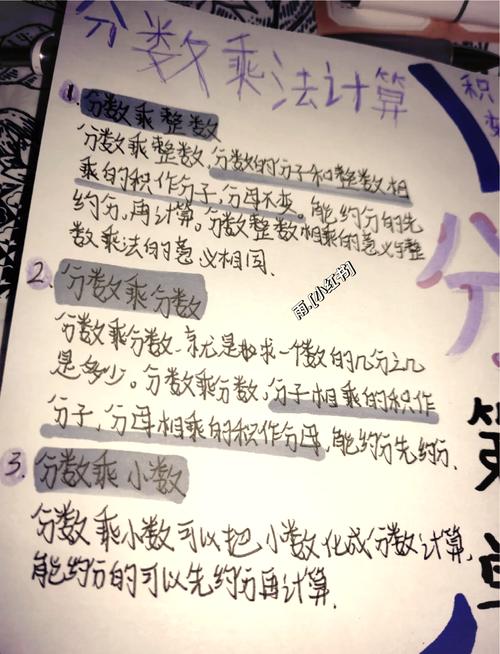 分数乘法计算
1. 分数乘整数
分数乘整数,分数的分子和整数相
乘的积作分子,分母不变。能约分的先
约分,再计算。分数整数相乘的意义与整
数乘法的意义相同.
雨.[小红书]
2. 分数乘分数
分数乘分数.就是求一个数的几分之几
是多少。分数乘分数,分子相乘的积作
分子,分母相乘的积作分母,能约分先约分.
3. 分数乘小数
分数乘小数可以把小数化成分数计算,
能约分的可以先约分再计算.
积
分
第
单